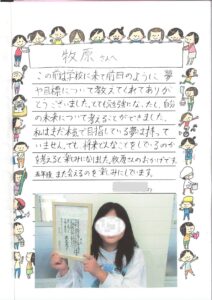 牧原さんへ
この前は学校に来て前日のように、夢
や目標について教えてくれてありが
とうございました。とても勉強になったし、自分
の未来について考えることができました。
私はまだ本気で目指している夢は持って
いません。でも将来どんなことをしているのか
を考えると楽しみになりました。牧原さんのおかげです。
五年後また会えるのを楽しみにしています。